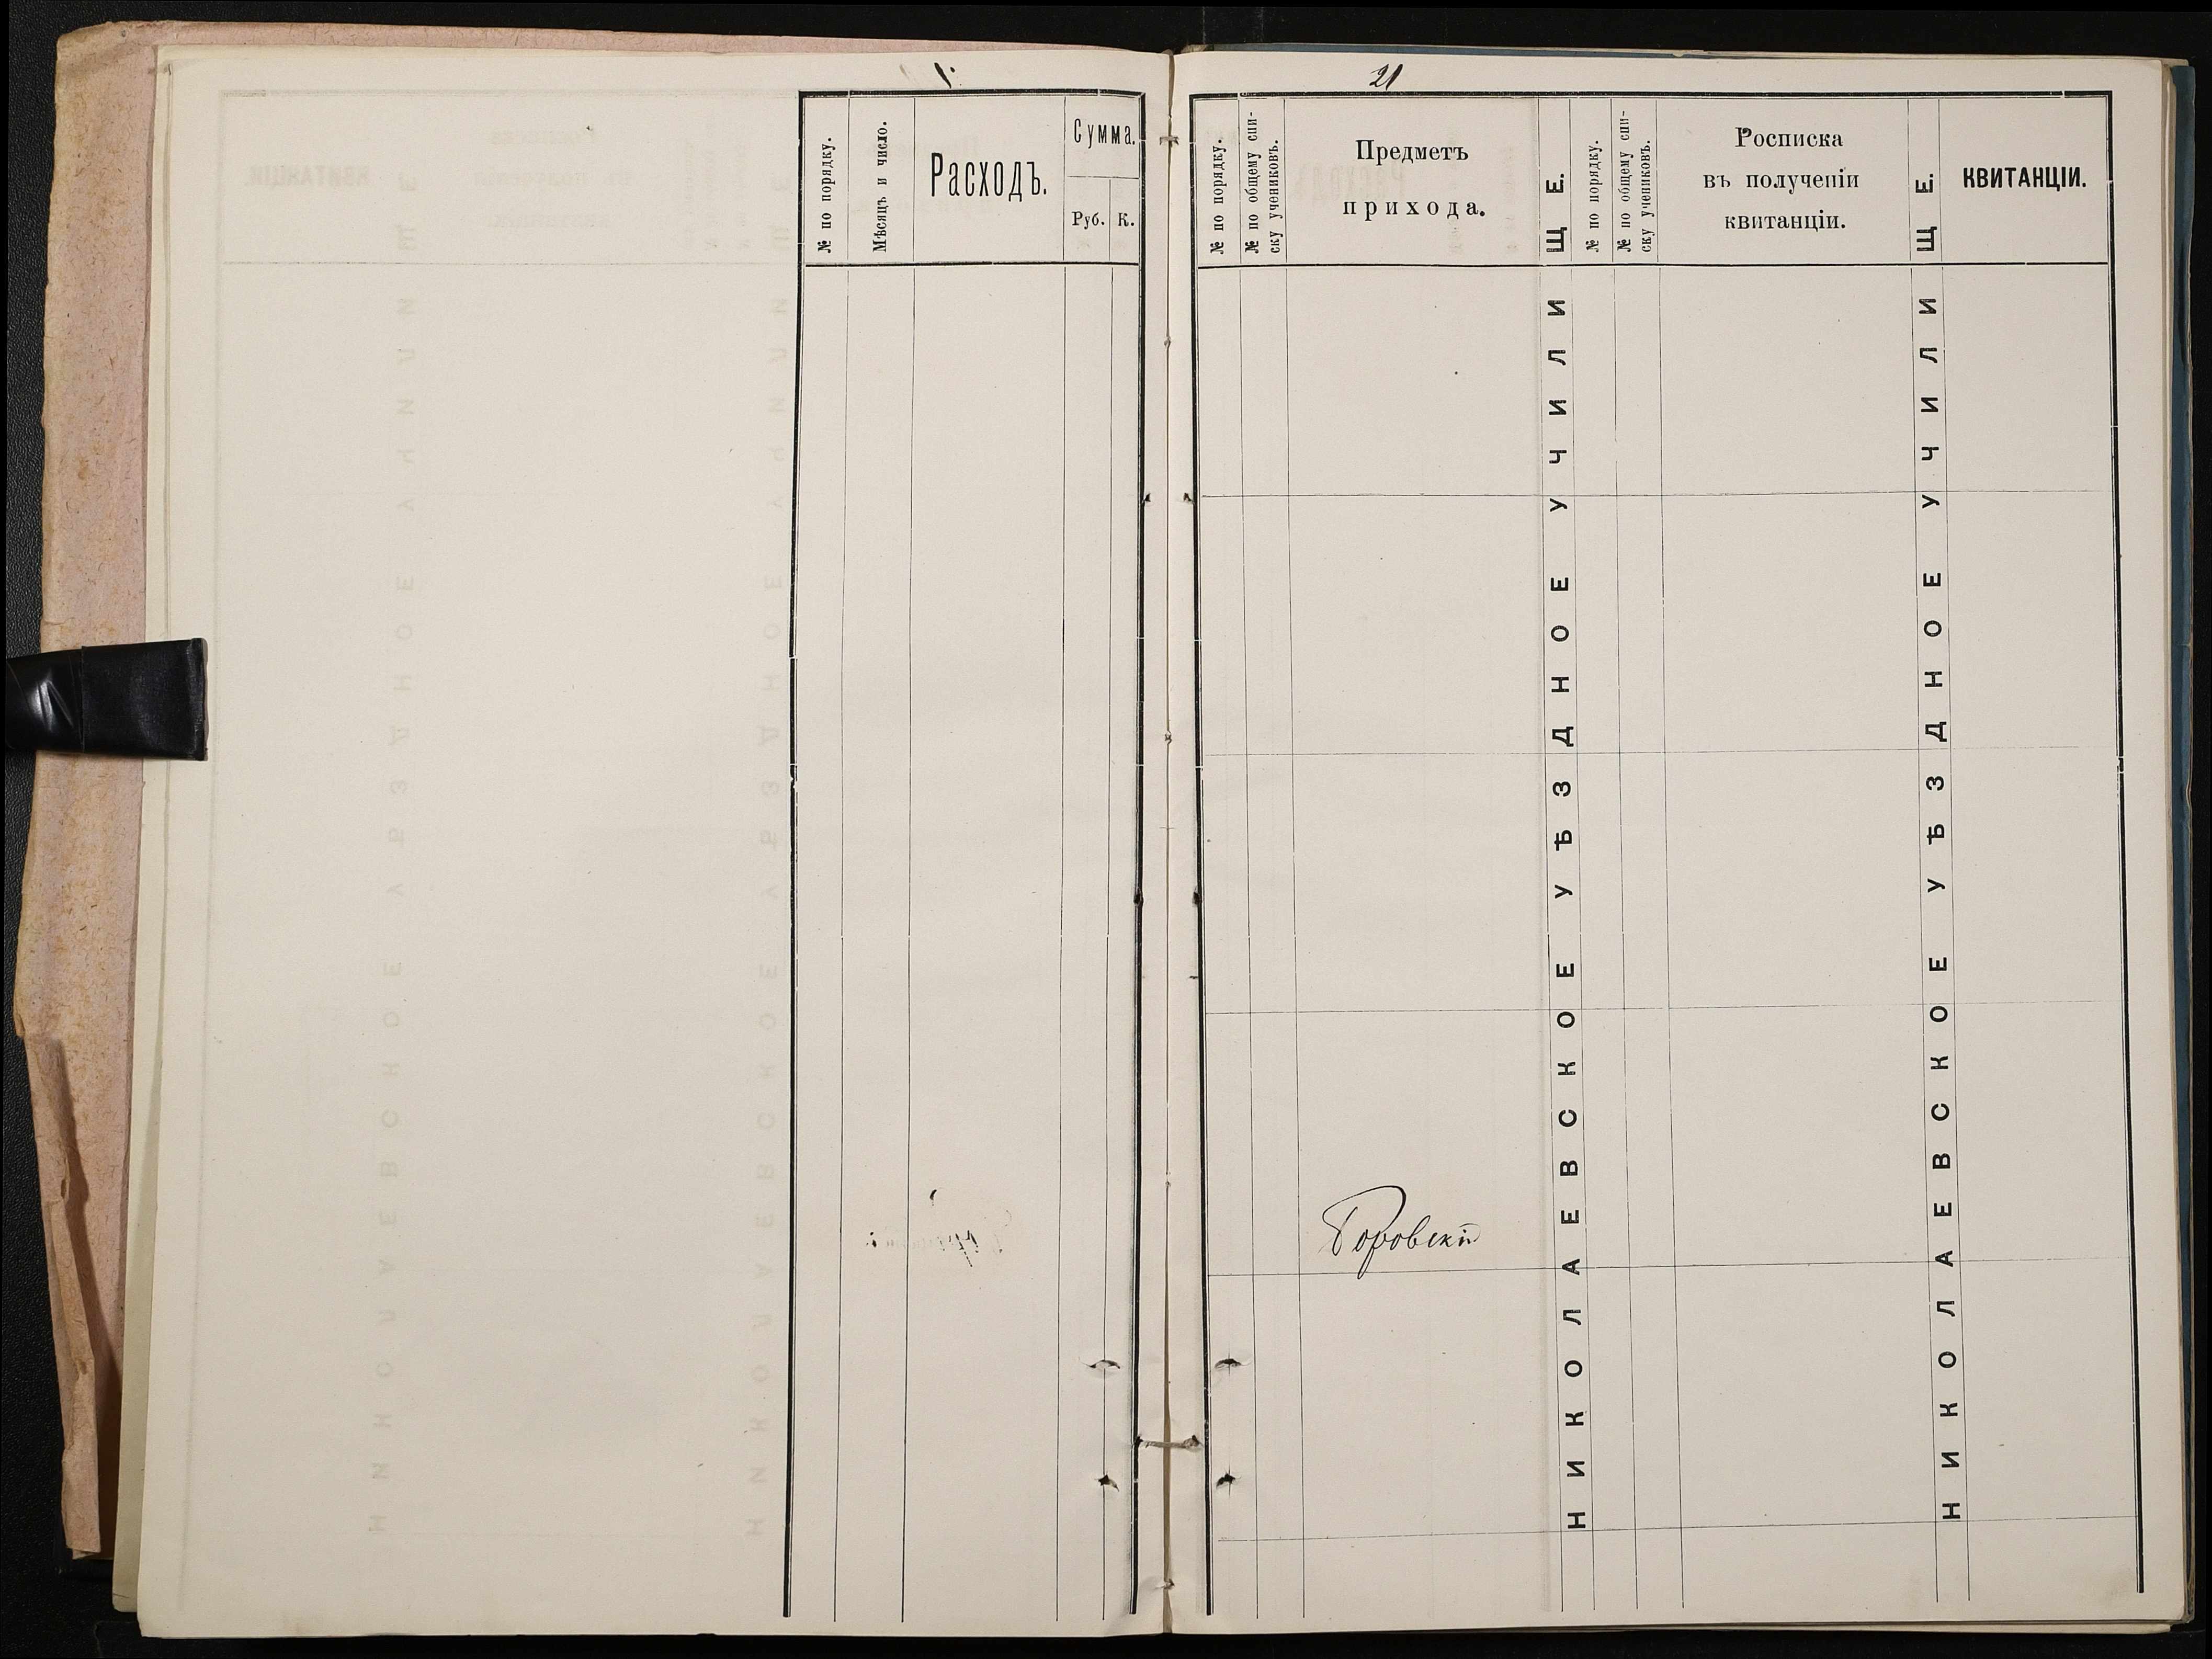 № по порядку.
Мѣсяцъ и число.
Расходъ.
Сумма.
Руб.
К.
21
№ по порядку.
№ по общему спи-
ску учениковъ.
Предметъ
прихода.
НИКОЛАЕВСКОЕ УѢЗДНОЕ УЧИЛИЩЕ.
№ по порядку.
№ по общему спи-
ску учениковъ.
Росписка
въ полученіи
квитанціи.
НИКОЛАЕВСКОЕ УѢЗДНОЕ УЧИЛИЩЕ.
КВИТАНЦІИ.